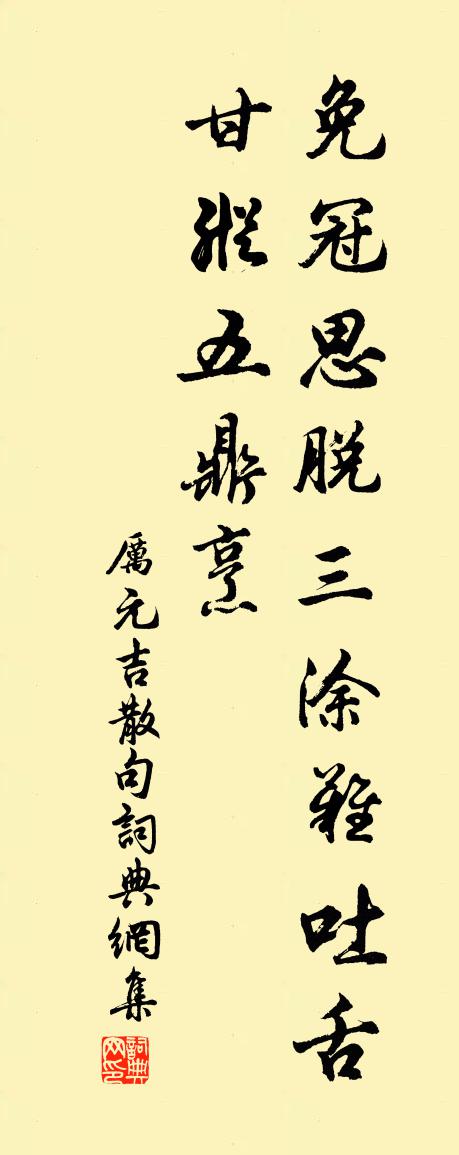 免冠思脱三涂難吐舌
甘縱五鼎烹
厲元吉散句詞典網集
詞典網印